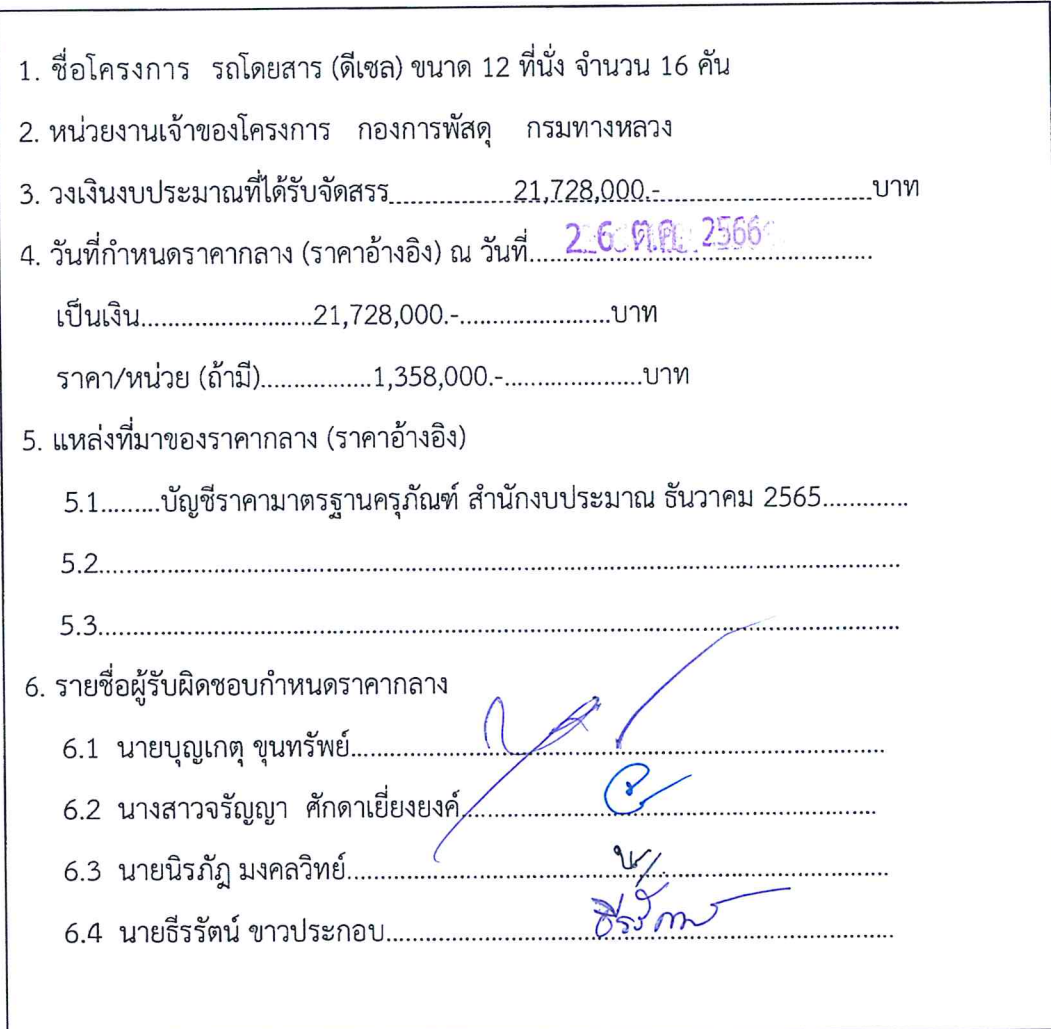 1. ชื่อโครงการ รถโดยสาร (ดีเซล) ขนาด 12 ที่นั่ง จำนวน 16 คัน
2. หน่วยงานเจ้าของโครงการ กองการพัสดุ กรมทางหลวง
3. วงเงินงบประมาณที่ได้รับจัดสรร................21,728,000.-...........................บาท
4. วันที่กำหนดราคากลาง (ราคาอ้างอิง) ณ วันที่.....26 ต.ค. 2566................
เป็นเงิน..........................21,728,000.-.......................บาท
ราคา/หน่วย (ถ้ามี).................1,358,000.-.....................บาท
5. แหล่งที่มาของราคากลาง (ราคาอ้างอิง)
5.1.........บัญชีราคามาตรฐานครุภัณฑ์ สำนักงบประมาณ ธันวาคม 2565.............
5.2...........................................................................................................................
5.3...........................................................................................................................
6. รายชื่อผู้รับผิดชอบกำหนดราคากลาง
6.1 นายบุญเกตุ ขุนทรัพย์.................................................................................
6.2 นางสาวจรัญญา ศักดาเยี่ยงยงค์...............................................................
6.3 นายนิรภัฎ มงคลวิทย์..................................................................................
6.4 นายธีรรัตน์ ขาวประกอบ.............................................................................